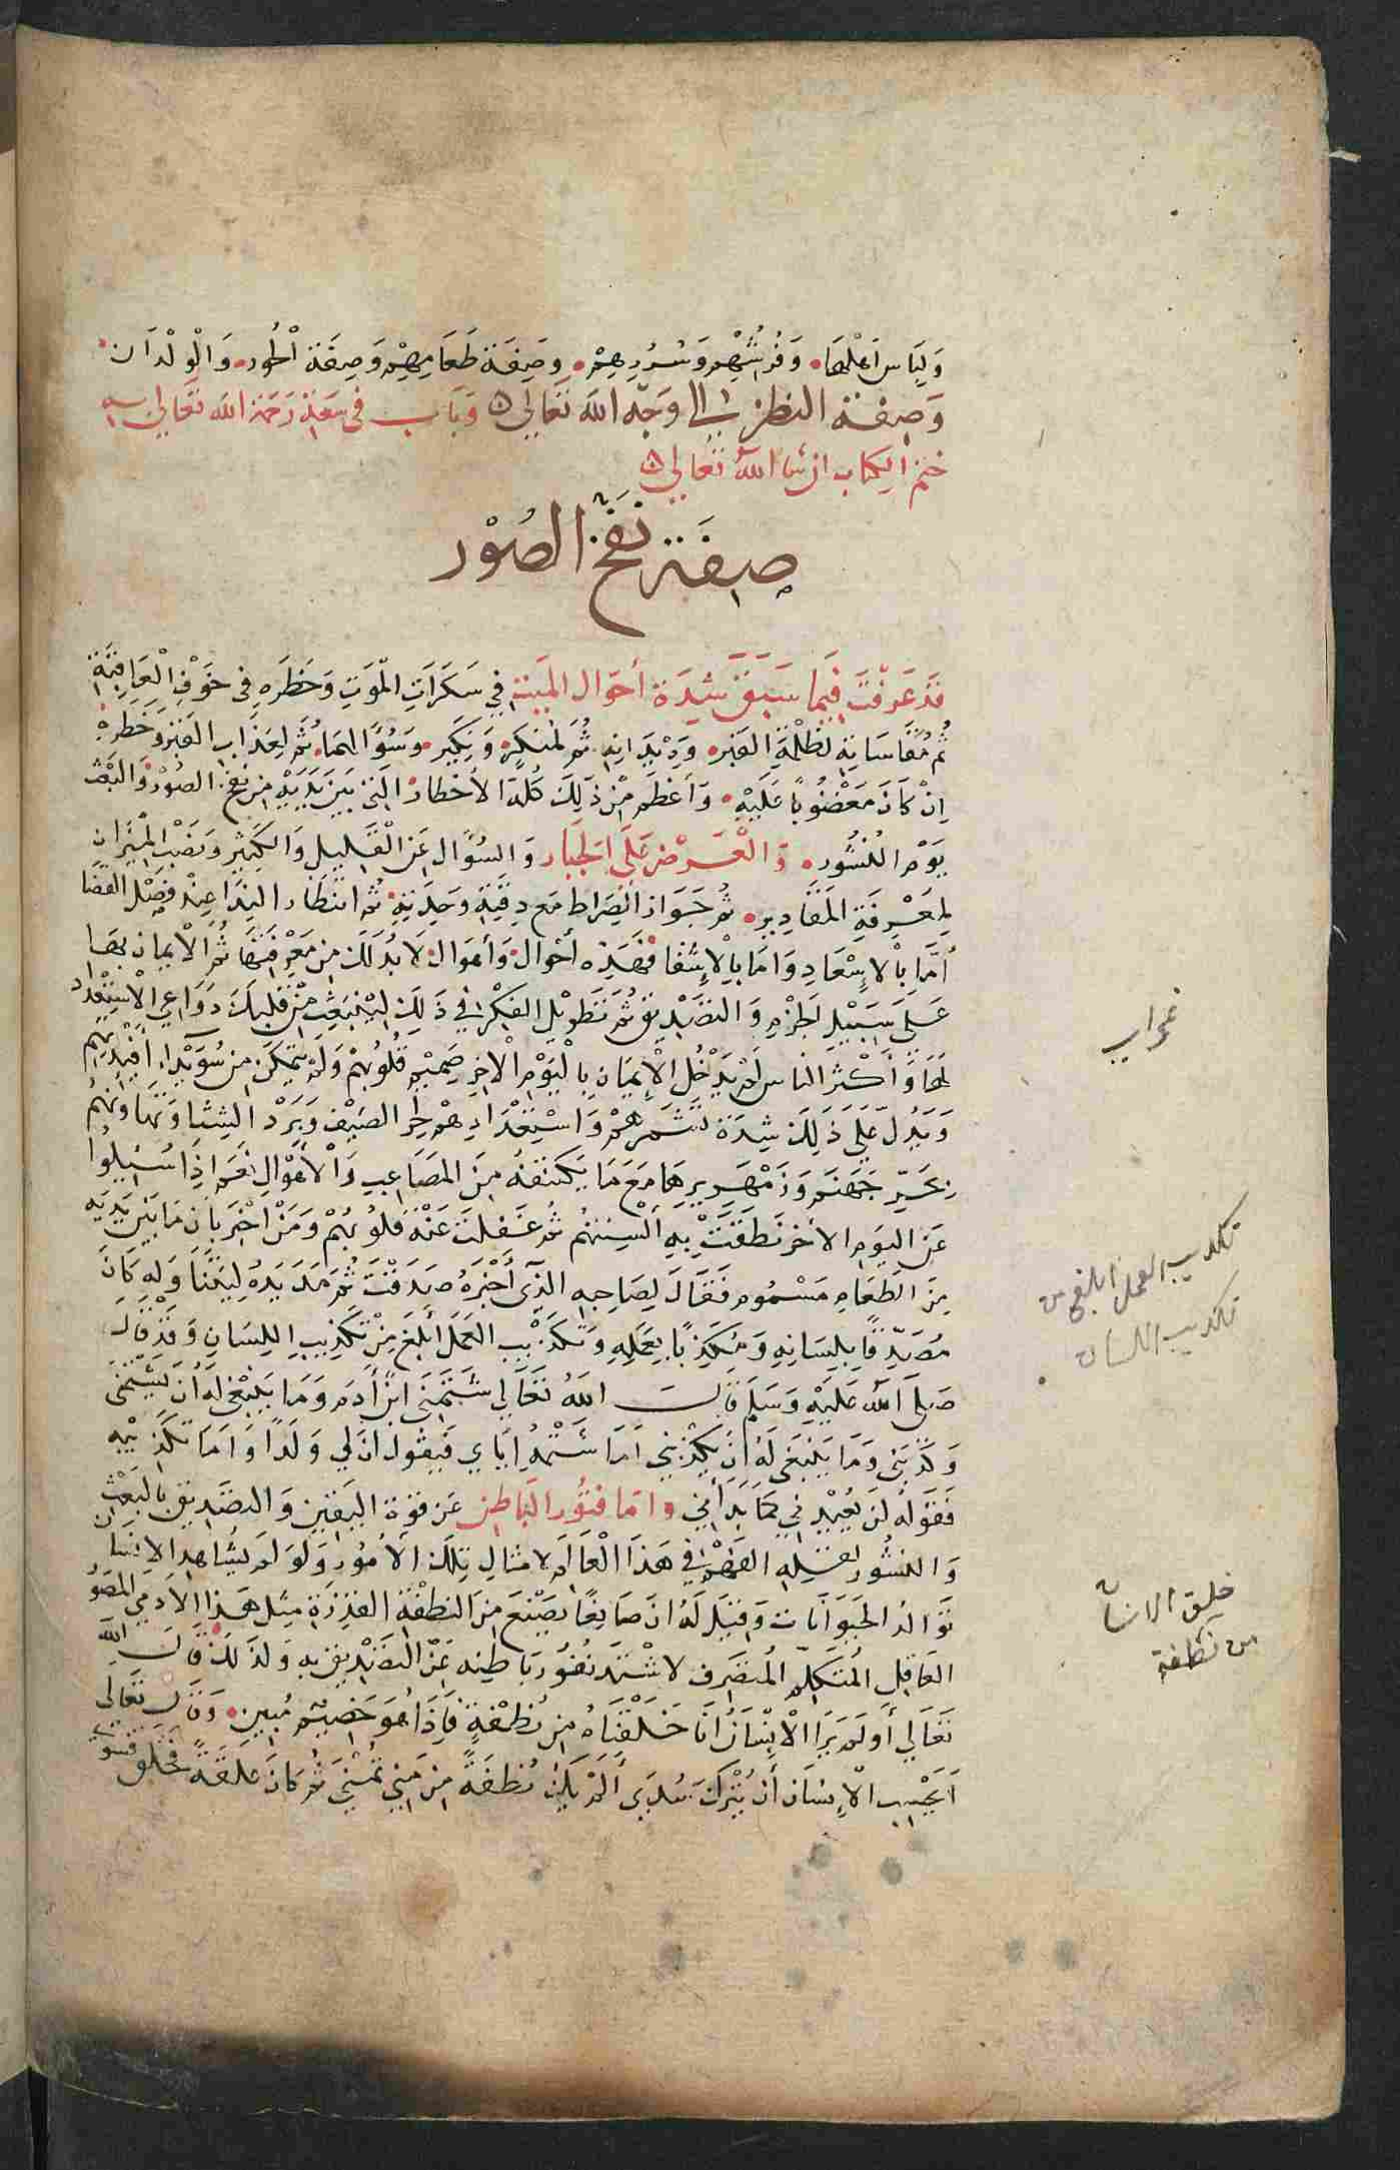 وَلِبَاسِ اَهْلِهَا وَفُرُشِهِمْ وَسُرُرِهِمْ وَصِفَة طَعَامِهِمْ وَصِفَة الْحُور وَالْوِلْدَان
وَصِفَة النظر الى وَجه الله تَعَالى وَبَاب فى سَعَة رَحْمَة الله تعَالى به
ختم الكتاب ان شا اللهُ تعَالى
صِفَة نَفخ الصُوْر
قَد عَرفْتَ فِيمَا سَبَقَ شِدَة أحوَال المَيّت فِي سَكَرَاتِ الْمَوتِ وَخَطَرِهِ فِى خَوْفِ الْعَاقِبَة
ثُم مُقَاسَاتِهِ لظُلْمَةِ القَبر وَدِيْدَانِهِ ثُمَ لمُنكَر وَنَكِير وَسُؤَالهمَا ثُمَ لِعَذَابِ القَبْرِ وَخَطَرِهِ
اِنْ كَانَ مَغْضُوبًا عَلَيْهِ وَأعْظَم مِنْ ذَلِكَ كُلّه الأخْطَار التِى بَيْنَ يَدَيْهِ مِن نَفْخ الصُوْر وَالبَعْث
يَوْم النُشُور وَالْعَرْض عَلَى الجَبار وَالسُؤَال عَن الْقَلِيل وَالكَثِيرِ وَنَصْبِ الْمِيْزَانِ
لِمَعْرِفَةِ المَقَادِير ثُم جَوَاز الصِّرَاط مَع دِقَّتِهِ وَحِدَّتِهِ ثُم انتظَار النِدَا عِنْدَ فَصْل القَضَا
أمَّا بِالاِسْعَادِ وَامَّا بِالاِشْقا فَهَذِه أحْوَال وَأهوَال لَابُد لَكَ مِن مَعْرِفَتِهَا ثُمَ الايمان بهَا
عَلَى سَبِيل الجَزْمِ وَالتَصْدِيق ثُمَ تَطْوِيْل الفِكْر فِي ذَلِكَ لِيَنْبَعِثَ مِنْ قَلبِكَ دَوَاعِي الاسْتِعْدَاد
لهَا وَأكْثَرُ الناس لَمْ يَدْخُلِ الاِيمَان بِالْيَوْمِ الاخِر صَمِيْمِ قُلُوبهِمْ وَلَمْ يَتَمَكّن مِن سُوَيْدَاءِ أفْئِدَتِهِمْ
وَيَدُلّ عَلَى ذَلِكَ شِدَة تَشَمُّرِهِمْ وَاسْتِعْدَادِهِمْ لِحرِّ الصَيْف وَبَرْد الشِتَا وَتَهَاوُنهُمْ
بِحَرِّ جَهَنمَ وَزَمْهَرِيرِهَا مَعَ مَا يَكْتَنِفُهُ مِنَ المَصَاعِبِ وَالاهْوَالِ نَعَم اِذَا سُئِلُوْا
عَنِ اليَومِ الاخر نَطَقَتْ بِهِ ألْسِنَتهُم ثُم غَفلَتْ عَنْهُ قلُوبُهُمْ وَمَنْ اُخْبِرَ بأن مَا بَيْنَ يَدَيه
مِنَ الطَعَامِ مَسْمُوم فَقَالَ لِصَاحِبِه الذِّى أخبَرهُ صَدَقْتَ ثُم مَدَ يَدَهُ لِيَتنَاوَلهِ كَانَ
مُصَدِّقًا بِلِسَانِهِ وَمُكَذِّبًا بِعَمَلِهِ وَتَكْذِيْب العَمَل أبْلَغ مِنْ تَكْذِيبِ اللِسَانِ وَقَدْ قَالَ
صَلَى اللهُ عَلَيْهِ وَسَلم قَالَ اللهُ تَعَالى شَتَمَنِى ابن أدَمَ وَمَا يَنبَغِى لَهُ أن يَشْتمَنى
وَكَذبَنِى وَمَا يَنْبَغِى لَهُ اَنَ يكذِبَنِي امَا شَتمُهُ ايَاي فَيَقُولُ انَ لِي وَلَدًا وَامَا تكْذِيبُه
فَقَوْلهُ لَنْ يُعِيْدنِي كَمَا بَدَأنِي وَامّا فتُور البَاطِن عَن قوّة اليَقين وَالتصْدِيق بِالبَعْثِ
وَالنشُور لقِلةِ الفَهْم فِى هَذَا الْعَالَم لامثالِ تِلكَ الأمُور وَلَو لَم يُشَاهِدِ الاِنسَان
تَوَالد الحَيَوَانَات وَقِيْلَ لَهُ انَ صَانِعًا يصْنَعَ مِنَ النطْفَةِ القذِرَةِ مِثل هَذا الادَمِي المصَوّر
العَاقِل المُتَكلِّم المُتَصَرِف لاشْتد نفوُر بَاطِنِه عَنْ التَصْدِيق بِه وَلذَلك قَالَ الله
تَعَالى أوَلَم يَرَا الْاِنْسَانُ انَا خَلَقْنَاهُ مِن نُطفَةٍ فَاِذَا هُوَ خَصِيْم مُبِين وَقَالَ تعَالى
اَيَحْسِبُ الاِنسَان أن يُتْركَ سُدًى أَلَمْ يَكُ نُطفَةً مِن مَنِي تُمْنَى ثُم كَانَ عَلَقَةً فَخَلَق فسَوى
تكذيب العمل ابلغ من
تكذيب اللسان
خلق الانسان
من نطفة